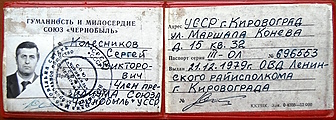 ГУМАННОСТЬ И МИЛОСЕРДИЕ
СОЮЗ «ЧЕРНОБЫЛЬ»
Колесников
Сергей
Викторович
Член пре-
зидиума Союза
"Чернобыль" УССР
Адрес УССР г. Кировоград
ул. Маршала Конева
д. 15 кв. 32
Паспорт
III-ОЛ № 696563
выдан 21.12.1979г. ОВД Ленин-
ского райисполкома
г. Кировограда